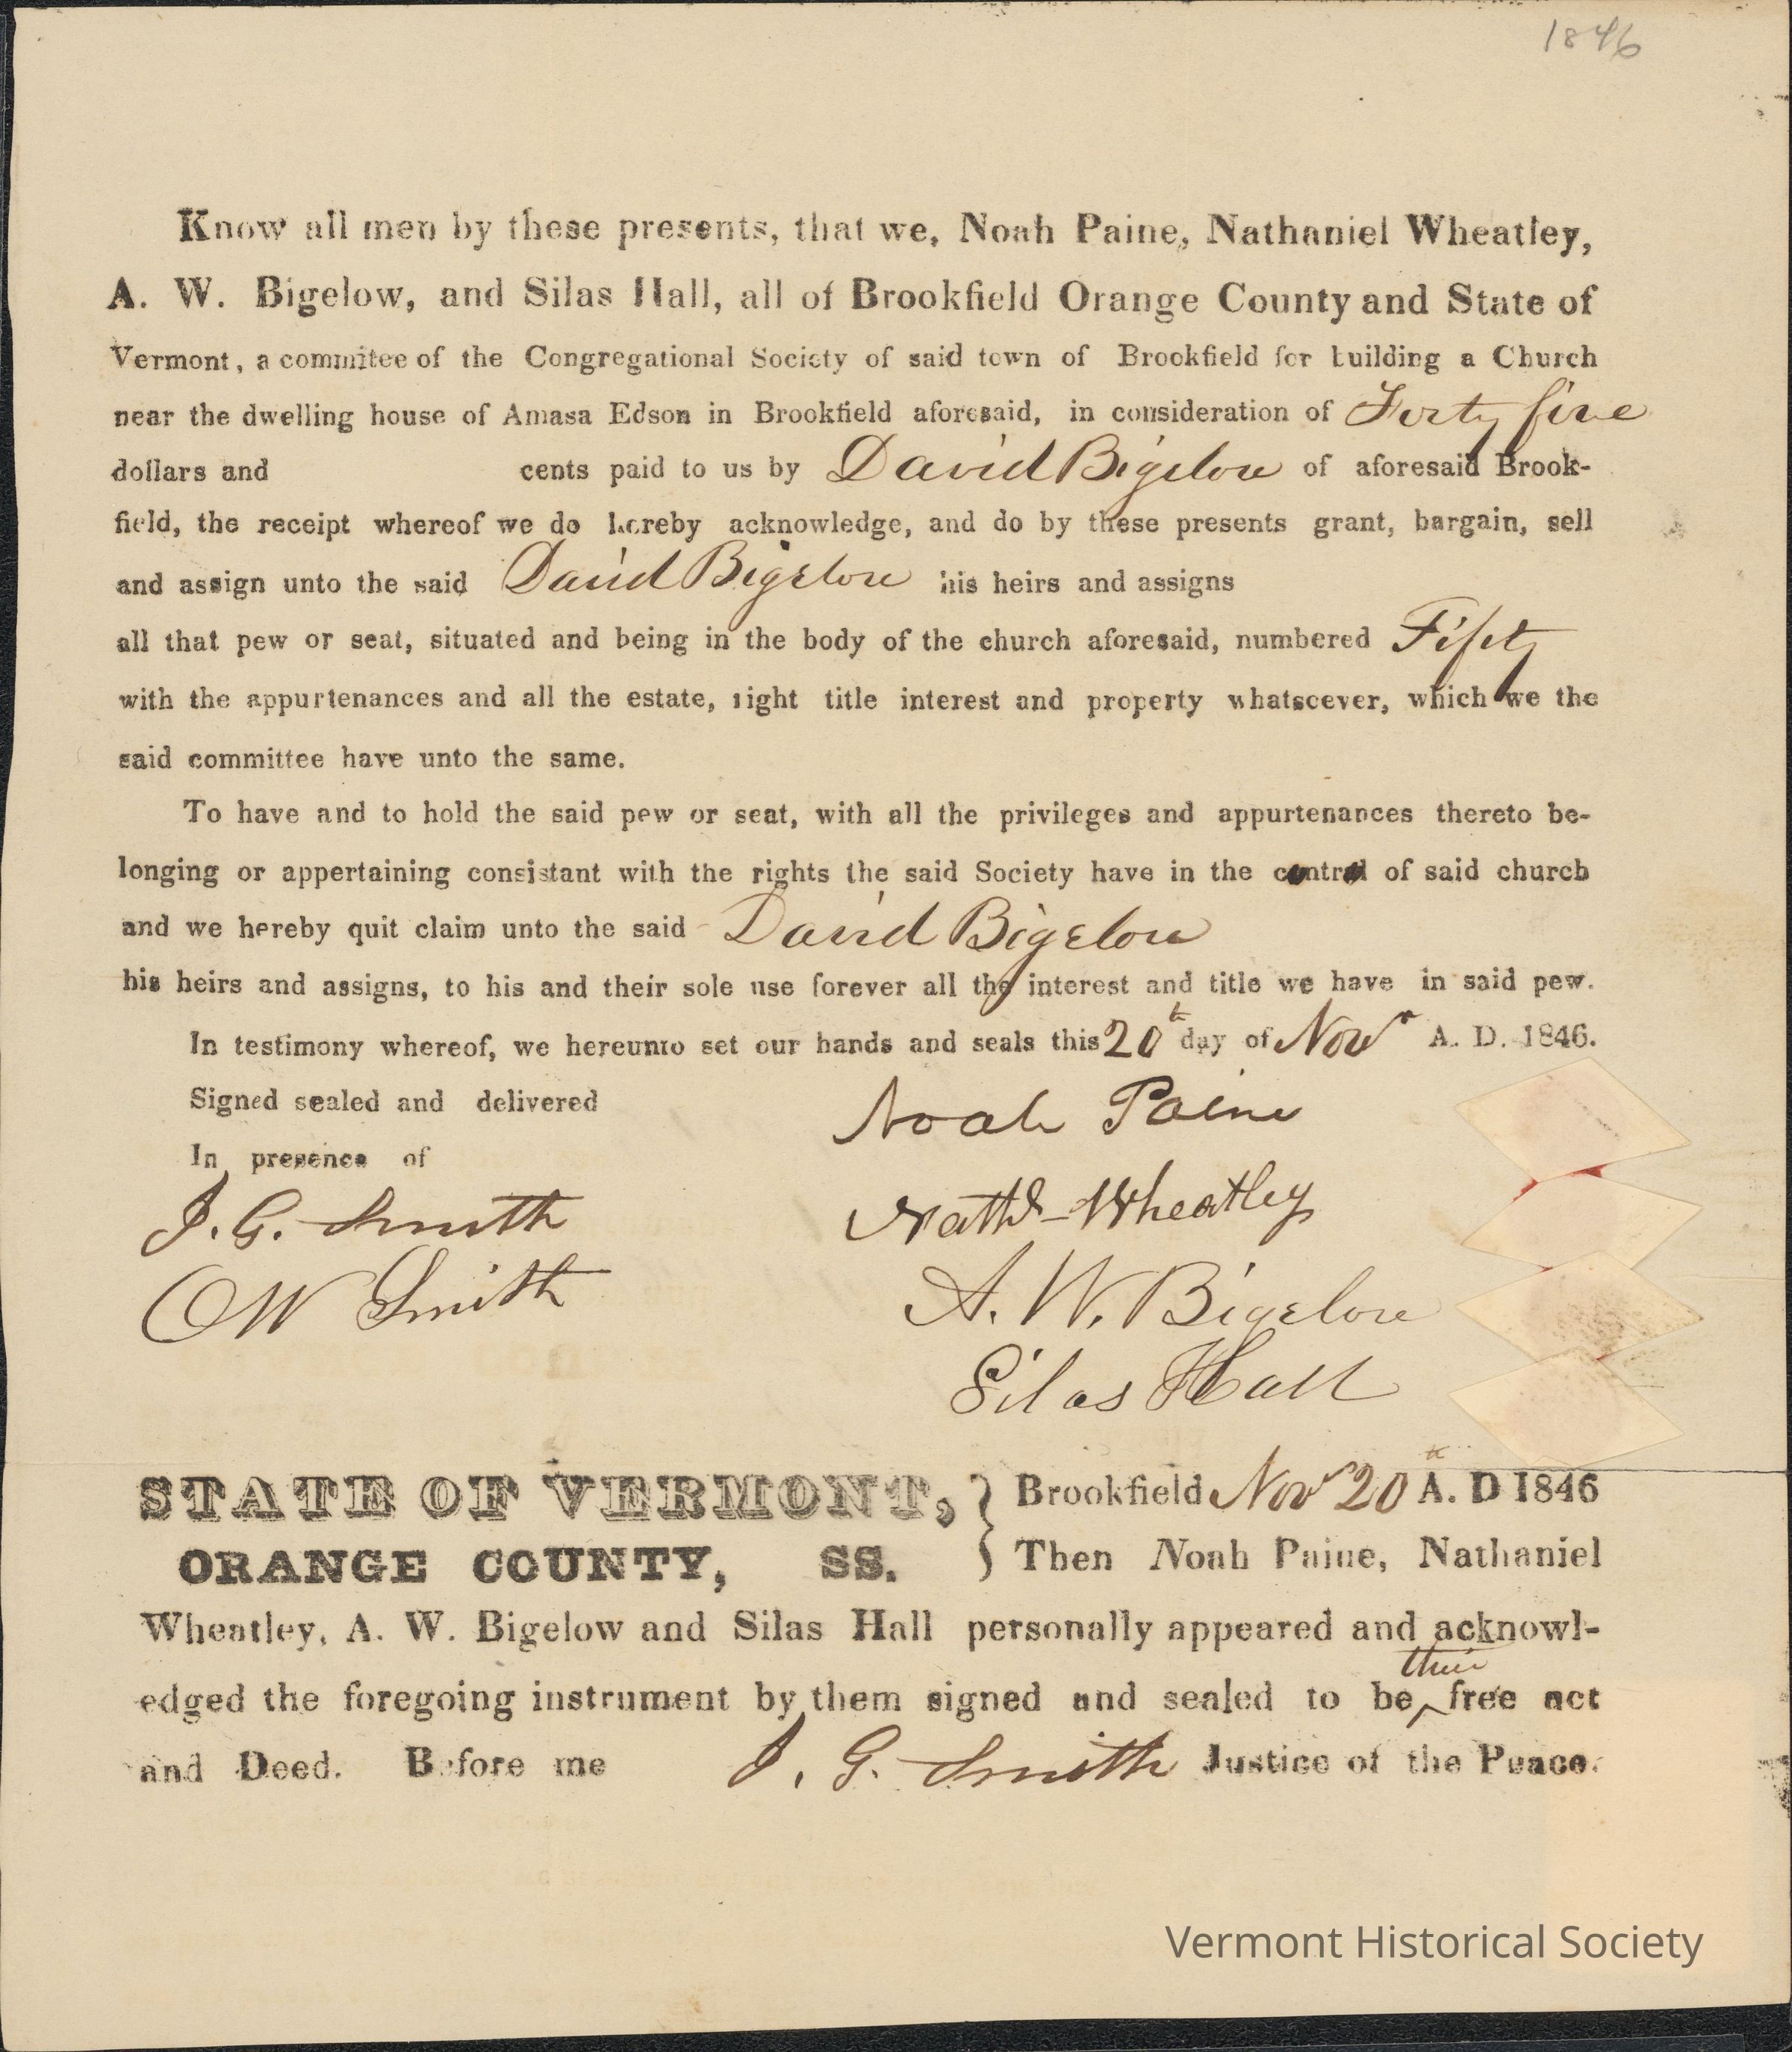 1846
Know all men by these presents, that we, Noah Paine, Nathaniel Wheatley,
A. W. Bigelow, and Silas Hall, all of Brookfield Orange County and State of
Vermont, a commitee of the Congregational Society of said town of Brookfield for building a Church
near the dwelling house of Amasa Edson in Brookfield aforesaid, in consideration of Forty five
dollars and cents paid to us by David Bigelow of aforesaid Brook-
field, the receipt whereof we do hereby acknowledge, and do by these presents grant, bargain, sell
and assign unto the said David Bigelow his heirs and assigns
all that pew or seat, situated and being in the body of the church aforesaid, numbered Fifty
with the appurtenances and all the estate, right title interest and property whatsoever, which we the
said committee have unto the same.
To have and to hold the said pew or seat, with all the privileges and appurtenances thereto be-
longing or appertaining consistant with the rights the said Society have in the control of said church
and we hereby quit claim unto the said David Bigelow
his heirs and assigns, to his and their sole use forever all the interest and title we have in said pew.
In testimony whereof, we hereunto set our hands and seals this 20th day of Novr A. D. 1846.
Signed sealed and delivered
In presence of
J. G. Smith
O W Smith
Noah Paine
Nathl Wheatley
A. W. Bigelow
Silas Hall
STATE OF VERMONT, } Brookfield Novr 20th A. D 1846
ORANGE COUNTY, SS. } Then Noah Paine, Nathaniel
Wheatley, A. W. Bigelow and Silas Hall personally appeared and acknowl-
edged the foregoing instrument by them signed and sealed to be their free act
and Deed. Before me J. G. Smith Justice of the Peace.
Vermont Historical Society